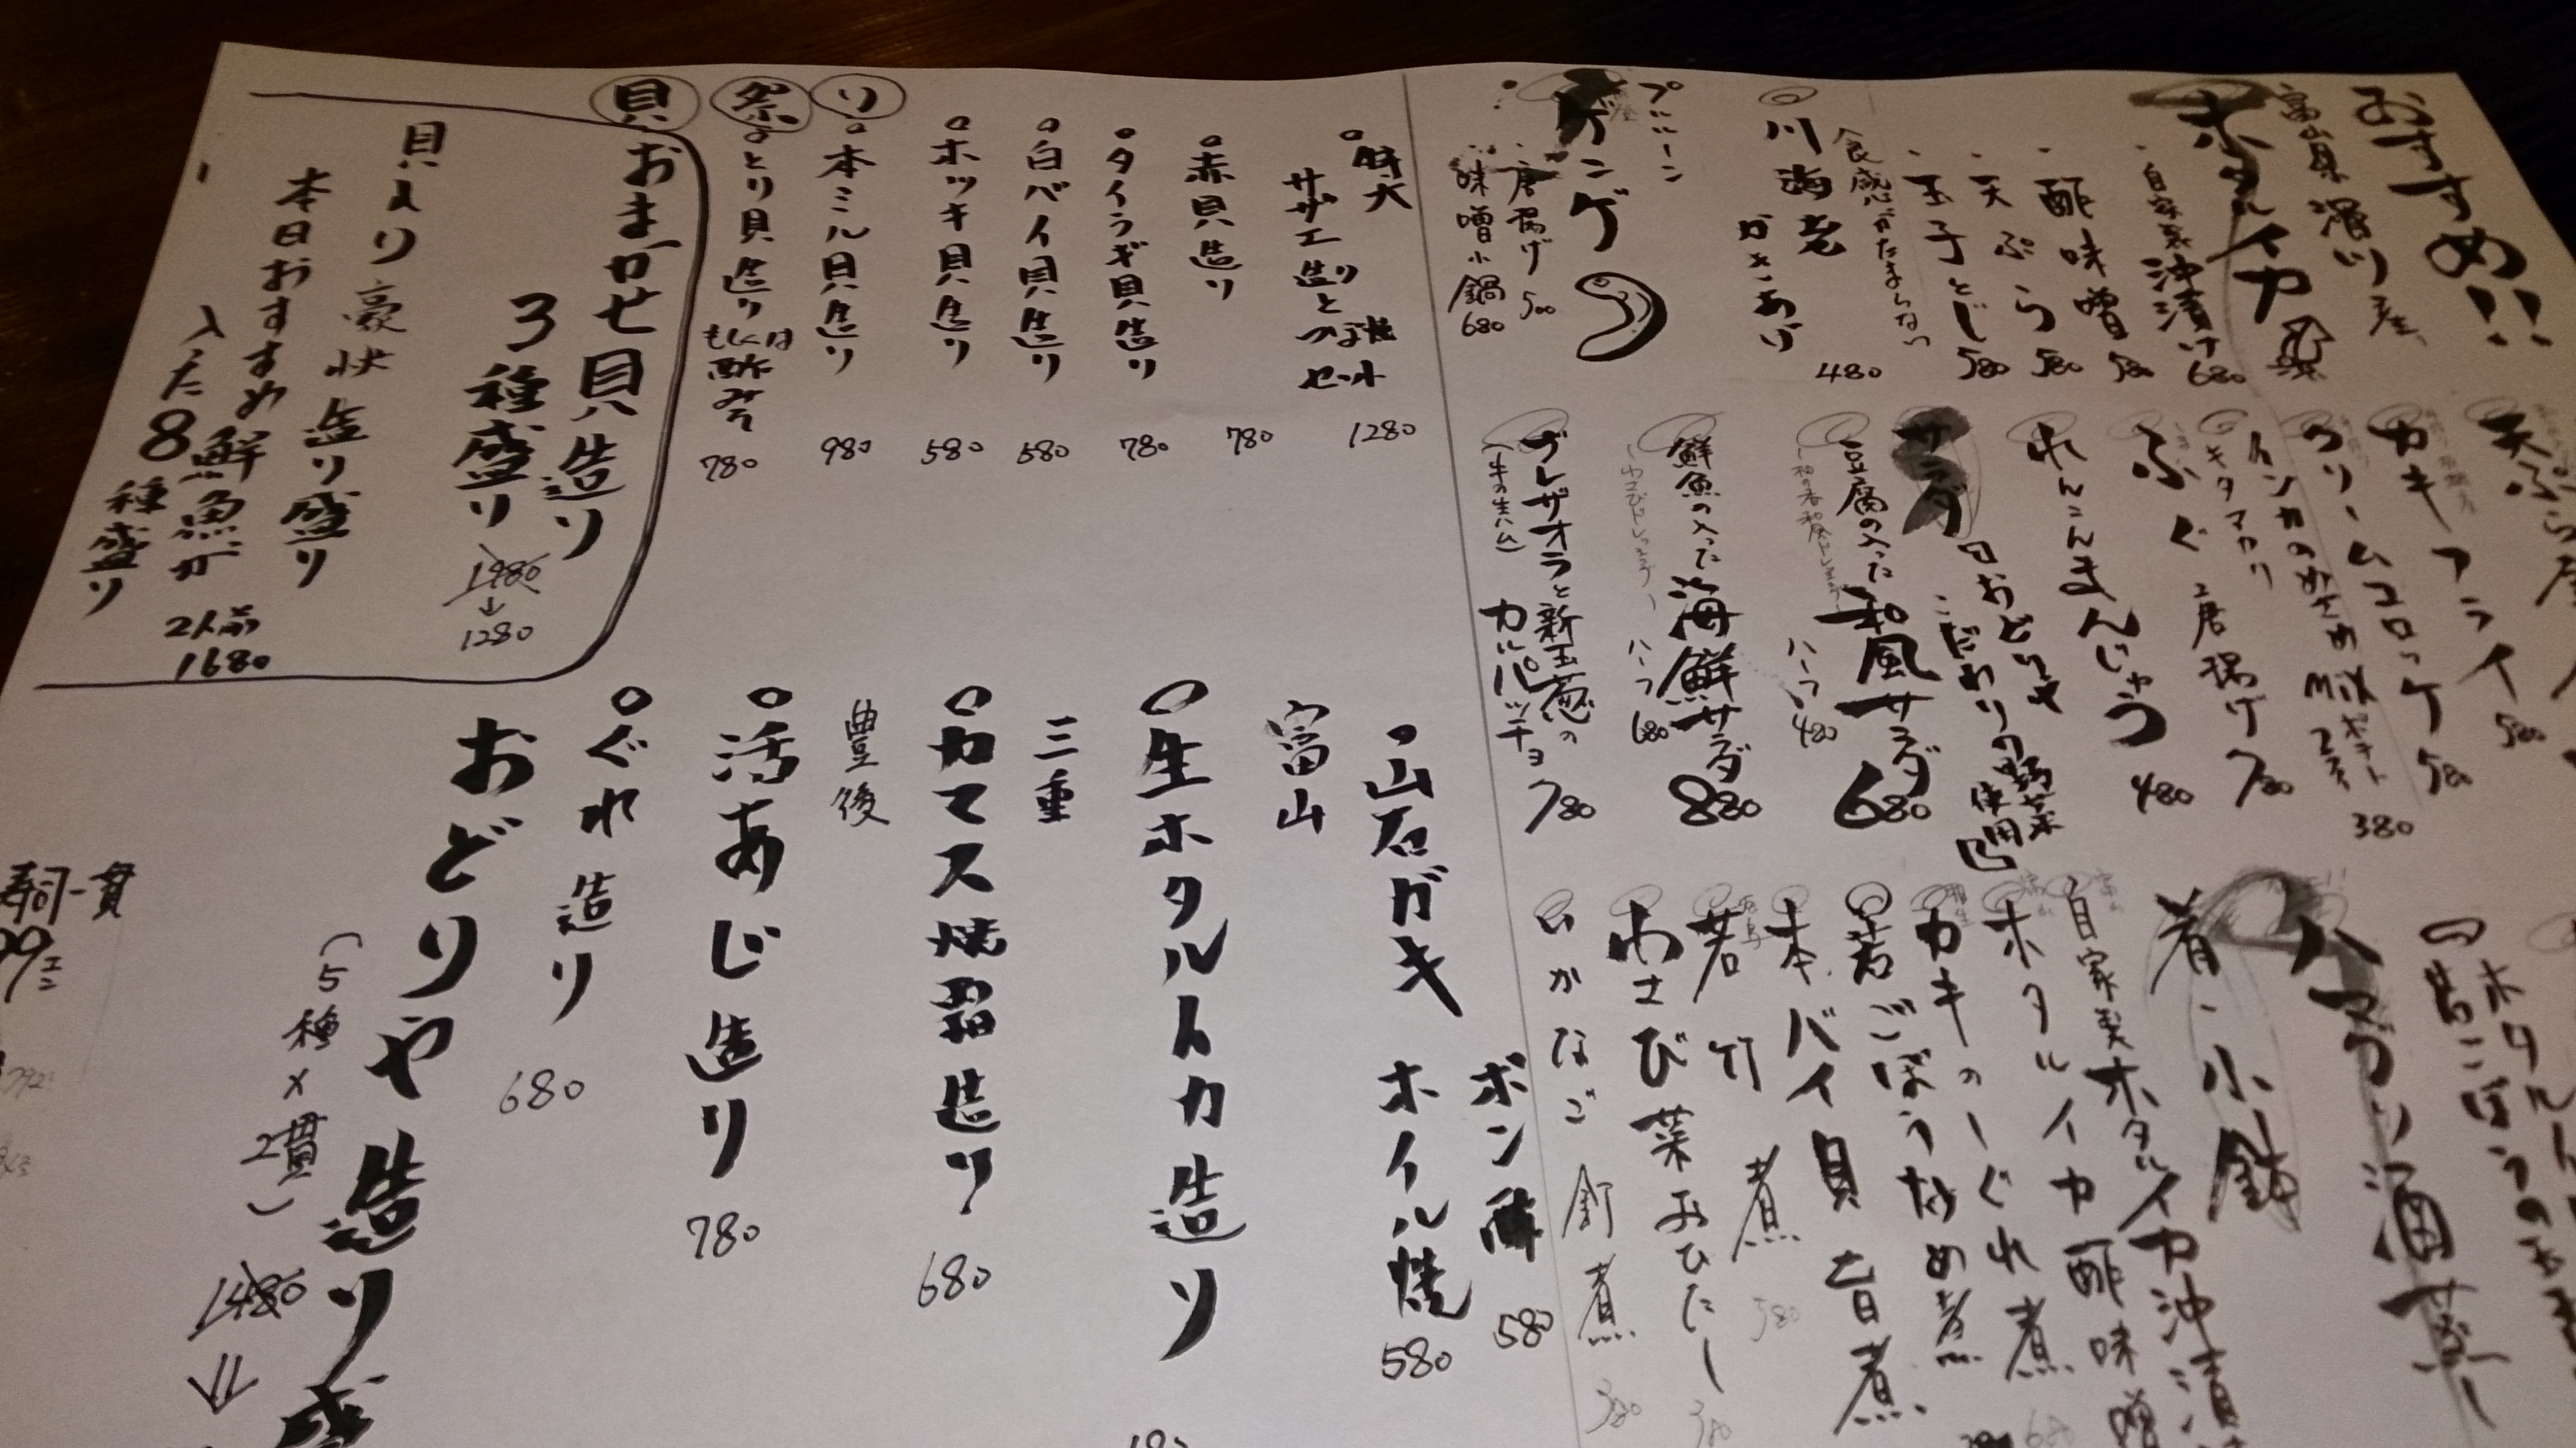 おすすめ!!
富山県滑川産
ホタルイカ
自家製沖漬け 680
酢味噌 580
天ぷら 580
玉子とじ 580
食感がたまらない
川海老 かきあげ 480
プルーン
ゲンゲ
唐揚げ 500
味噌小鍋 680
カキフライ 580
クリームコロッケ 580
インカのめざめ
キタアカリ
MIXポテトフライ 380
ふぐ唐揚げ 780
れんこんまんじゅう 480
サラダ
「おどりや
こだわりの野菜
使用」
豆腐の入った
和風サラダ 680
ハーフ 480
鮮魚の入った
海鮮サラダ 880
わさびドレッシング
ハーフ 680
ブレザオラと新玉葱の
(牛の生ハム) カルパッチョ 780
ハマグリ酒蒸し
肴・小鉢
自家製ホタルイカ沖漬
ホタルイカ酢味噌
カキのしぐれ煮
若ごぼうなめ煮
本バイ貝旨煮
若竹煮 580
わさび菜おひたし 380
いかなご釘煮 380
貝祭り
特大
サザエ造りと
つぼ焼
セット 1280
赤貝造り 780
タイラギ貝造り 780
白バイ貝造り 580
ホッキ貝造り 580
本ミル貝造り 980
とり貝造り
もしくは
酢みそ 780
おまかせ貝造り
3種盛り
1480
↓
1280
貝入り豪快造り盛り
本日おすすめ鮮魚が
入った8種盛り
2人前
1680
山石ガキ
ポン酢 580
ホイル焼 580
富山
生ホタルイカ造り
三重
カマス焼霜造り 680
豊後
活あじ造り 780
ぐれ造り 680
おどりや造り盛
(5種×2貫)
1480
寿司一貫